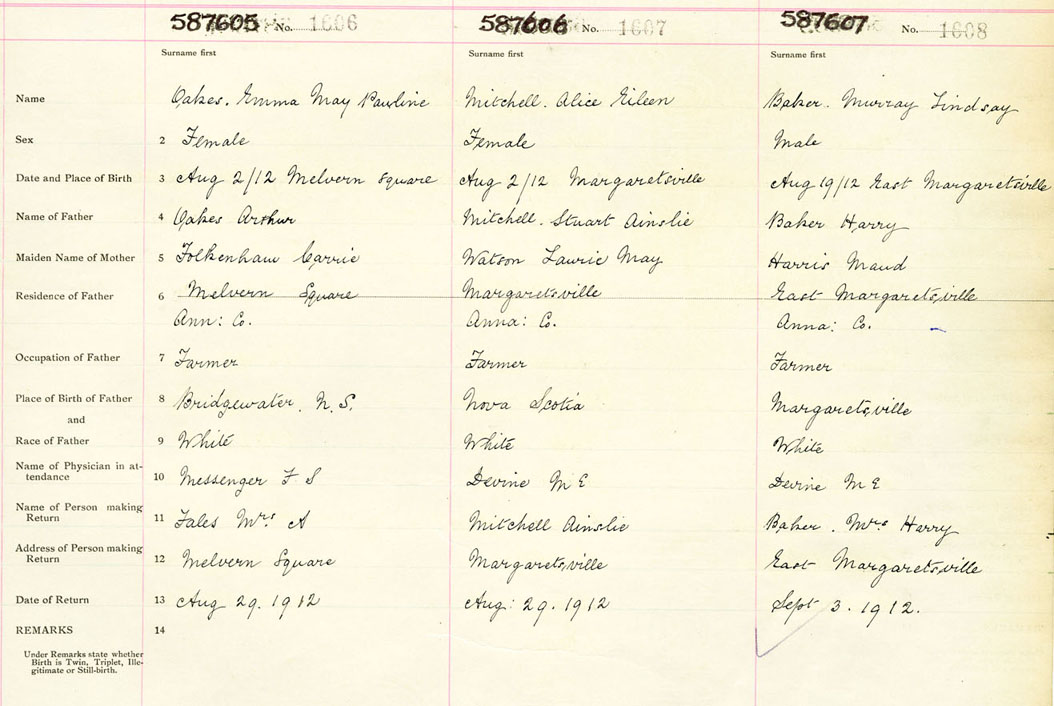 587605 No. 1606 587606 No. 1607 587607 No. 1608
Surname first Surname first Surname first
Name Oakes. Emma May Pauline Mitchell. Alice Eileen Baker. Murray Lindsay
Sex 2 Female Female Male
Date and Place of Birth 3 Aug 2/12 Melvern Square Aug 2/12 Margaretsville Aug 19/12 East Margaretsville
Name of Father 4 Oakes Arthur Mitchell. Stuart Ainslie Baker Harry
Maiden Name of Mother 5 Folkenham Carrie Watson Laurie May Harris Maud
Residence of Father 6 Melvern Square Margaretsville East Margaretsville
Ann: Co. Anna: Co. Anna: Co.
Occupation of Father 7 Farmer Farmer Farmer
Place of Birth of Father 8 Bridgewater. N.S. Nova Scotia Margaretsville
and
Race of Father 9 White White White
Name of Physician in at-
tendance 10 Messenger F S Devine M E Devine M E
Name of Person making
Return 11 Fales Mrs A Mitchell Ainslie Baker. Mrs Harry
Address of Person making
Return 12 Melvern Square Margaretsville East Margaretsville
Date of Return 13 Aug 29. 1912 Aug: 29. 1912 Sept 3. 1912.
REMARKS 14
Under Remarks state whether
Birth is Twin, Triplet, Ille-
gitimate or Still-birth.